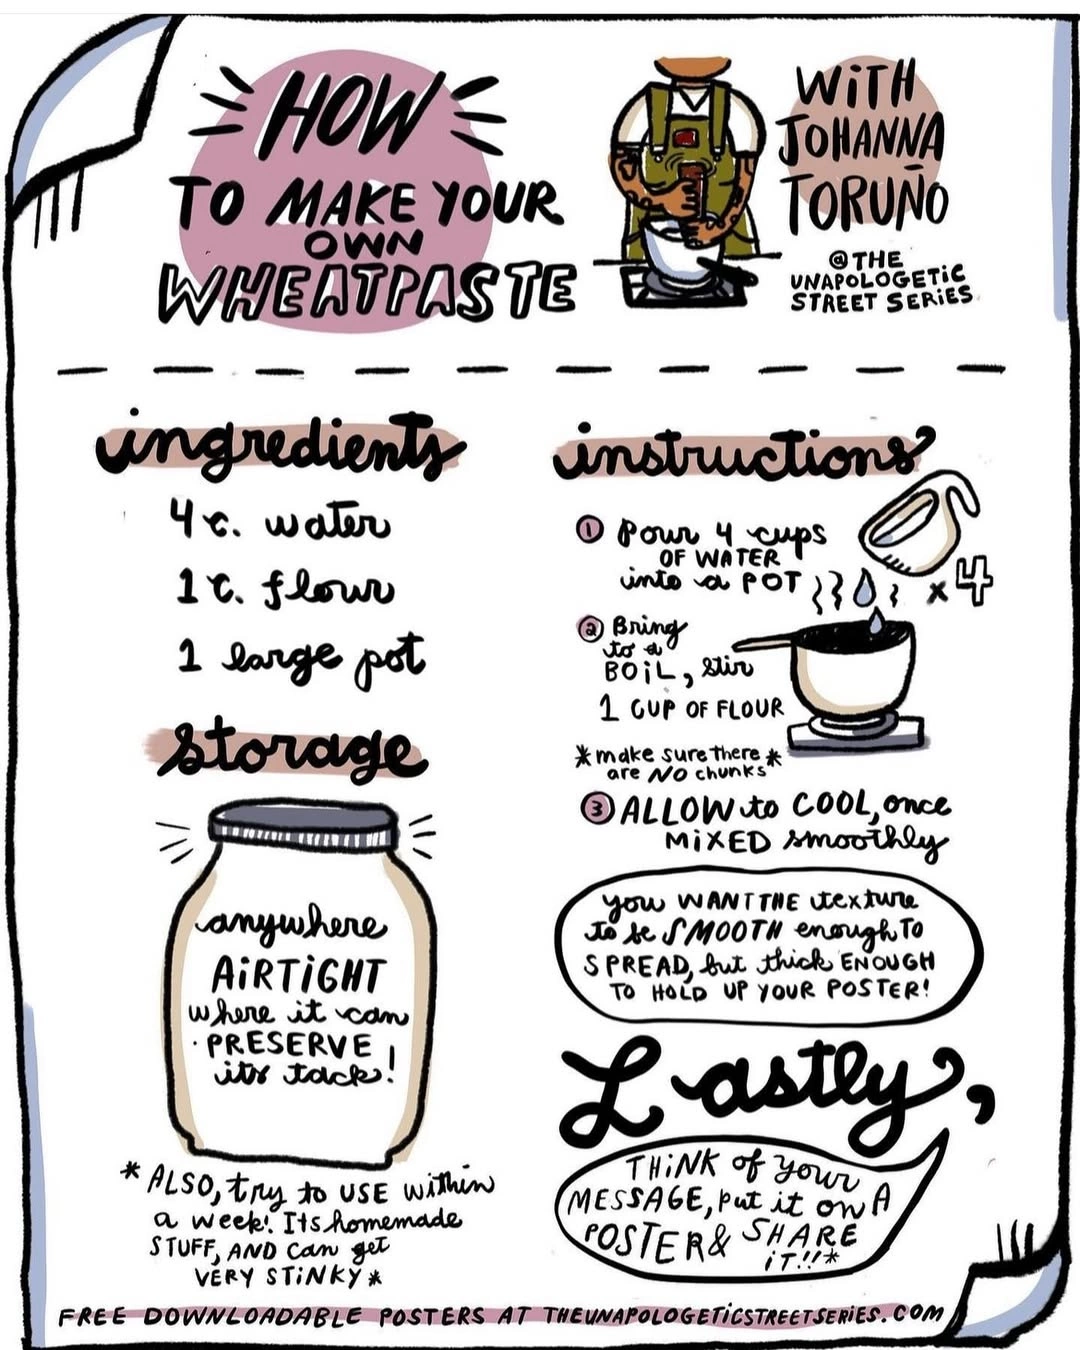 HOW
TO MAKE YOUR
OWN
WHEATPASTE
WiTH
JOHANNA
TORUÑO
@THE
UNAPOLOGETiC
STREET SERiES
ingredients
4 c. water
1 c. flour
1 large pot
storage
anywhere
AiRTiGHT
where it can
PRESERVE
its tack!
* ALSO, try to USE within
a week! Its homemade
STUFF, AND can get
VERY STiNKY *
instructions
1 Pour 4 cups
OF WATER
into a POT
x4
2 Bring
to a
BOiL, stir
1 CUP OF FLOUR
* make sure there *
are NO chunks
3 ALLOW to COOL, once
MiXED smoothly
you WANT THE texture
to be SMOOTH enough TO
SPREAD, but thick ENOUGH
TO HOLD UP YOUR POSTER!
Lastly,
THiNK of your
MESSAGE, put it on A
POSTER & SHARE
iT!!*
FREE DOWNLOADABLE POSTERS AT THEUNAPOLOGETiCSTREETSERiES.COM